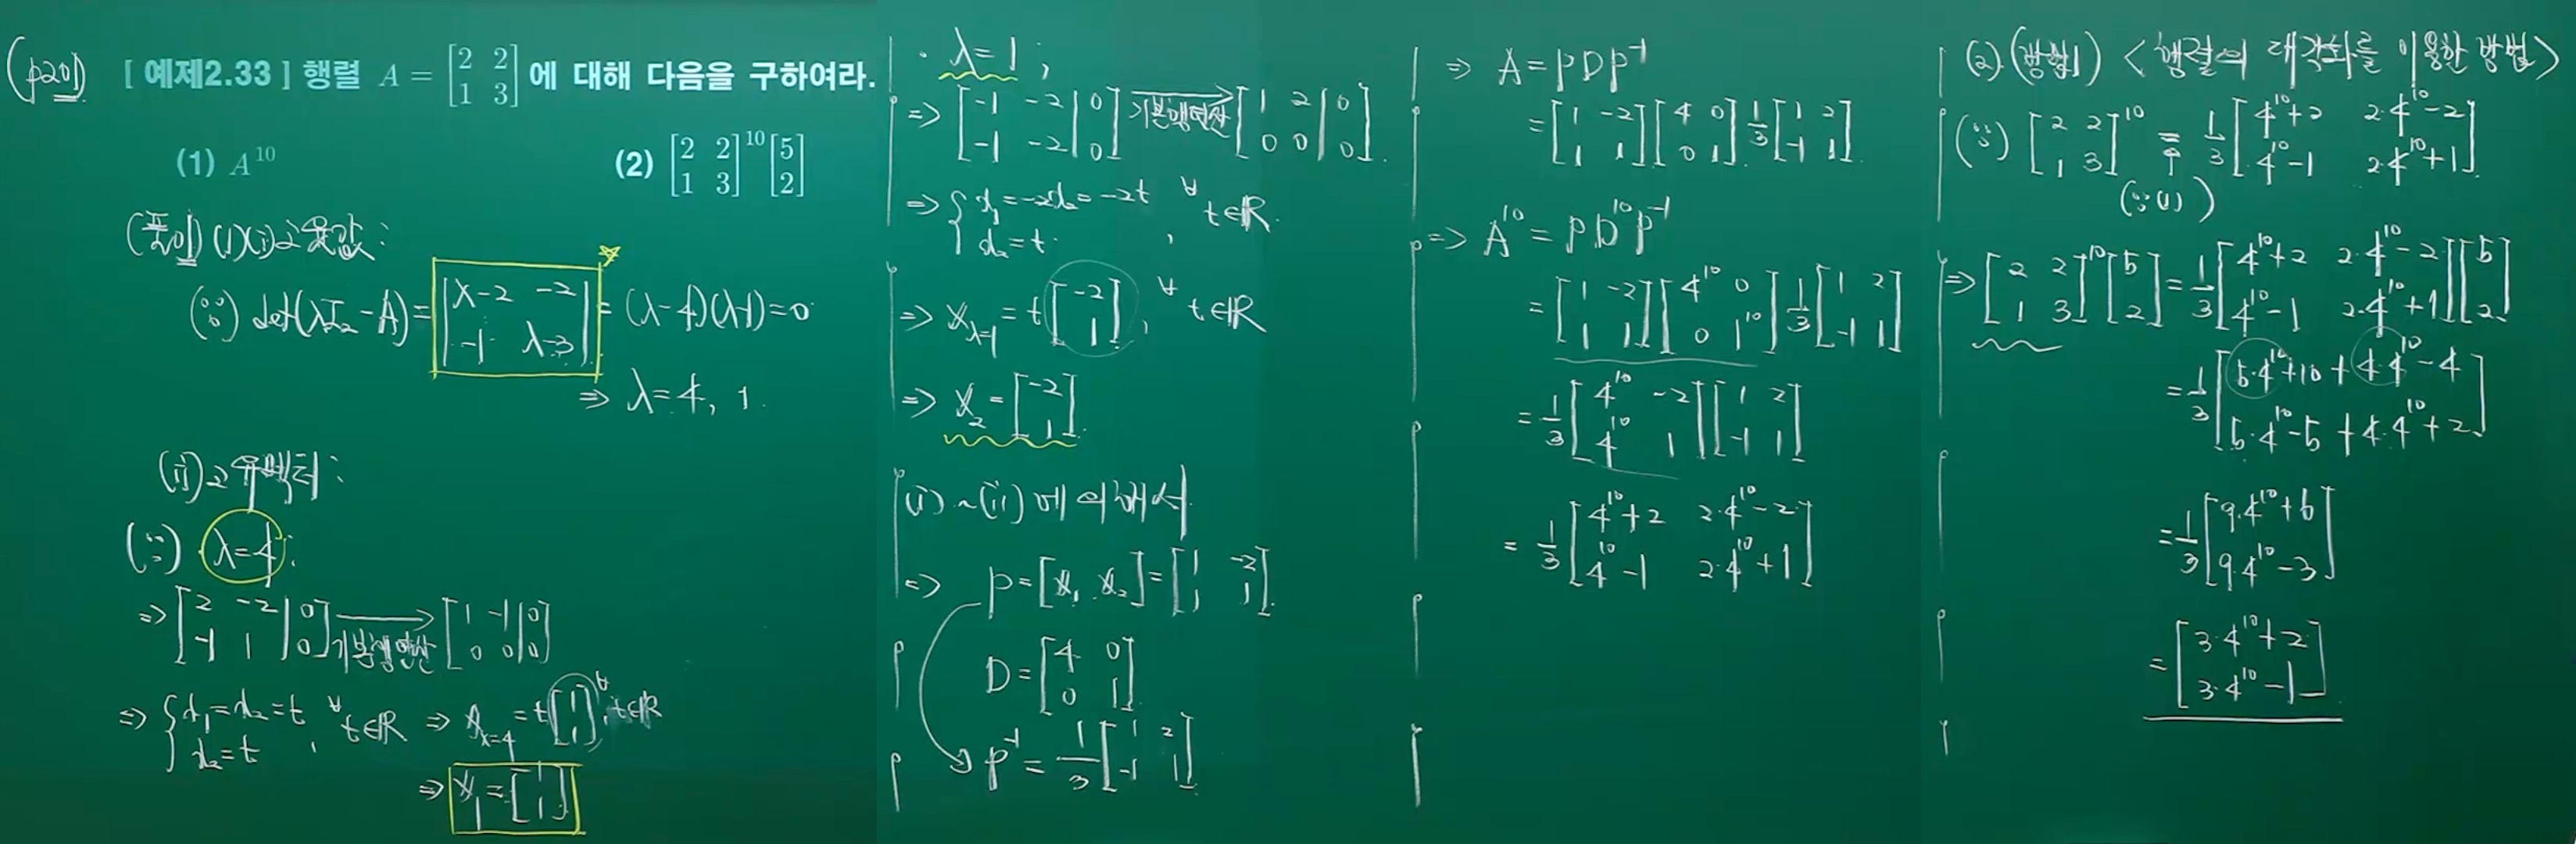 (p201) [ 예제2.33 ] 행렬 A = [2 2; 1 3] 에 대해 다음을 구하여라.
(1) A^10 (2) [2 2; 1 3]^10 [5; 2]
(풀이) (1) (i) 고윳값 :
(∵) det(λI₂-A) = |λ-2 -2; -1 λ-3| = (λ-4)(λ-1)=0
⇒ λ=4, 1.
(ii) 고유벡터 :
(∵) · λ=4 ;
⇒ [2 -2 | 0; -1 1 | 0] 기본행연산→ [1 -1 | 0; 0 0 | 0]
⇒ { x₁=x₂=t, x₂=t , ∀t∈ℝ ⇒ x_λ=4 = t[1; 1], ∀t∈ℝ
⇒ x₁ = [1; 1]
· λ=1 ;
⇒ [-1 -2 | 0; -1 -2 | 0] 기본행연산→ [1 2 | 0; 0 0 | 0]
⇒ { x₁=-2x₂=-2t, x₂=t. , ∀t∈ℝ.
⇒ x_λ=1 = t[-2; 1], ∀t∈ℝ
⇒ x₂ = [-2; 1]
(i)~(ii)에 의해서
⇒ P=[x₁ x₂]=[1 -2; 1 1]
D=[4 0; 0 1]
P^-1 = 1/3 [1 2; -1 1]
⇒ A=PDP^-1
= [1 -2; 1 1][4 0; 0 1] 1/3 [1 2; -1 1]
⇒ A^10 = PD^10P^-1
= [1 -2; 1 1][4^10 0; 0 1^10] 1/3 [1 2; -1 1]
= 1/3 [4^10 -2; 4^10 1][1 2; -1 1]
= 1/3 [4^10+2 2·4^10-2; 4^10-1 2·4^10+1]
(2) (방법1) <행렬의 대각화를 이용한 방법>
(∵) [2 2; 1 3]^10 = 1/3 [4^10+2 2·4^10-2; 4^10-1 2·4^10+1]
↑
(∵(1))
⇒ [2 2; 1 3]^10 [5; 2] = 1/3 [4^10+2 2·4^10-2; 4^10-1 2·4^10+1][5; 2]
= 1/3 [5·4^10+10+4·4^10-4; 5·4^10-5+4·4^10+2]
= 1/3 [9·4^10+6; 9·4^10-3]
= [3·4^10+2; 3·4^10-1]